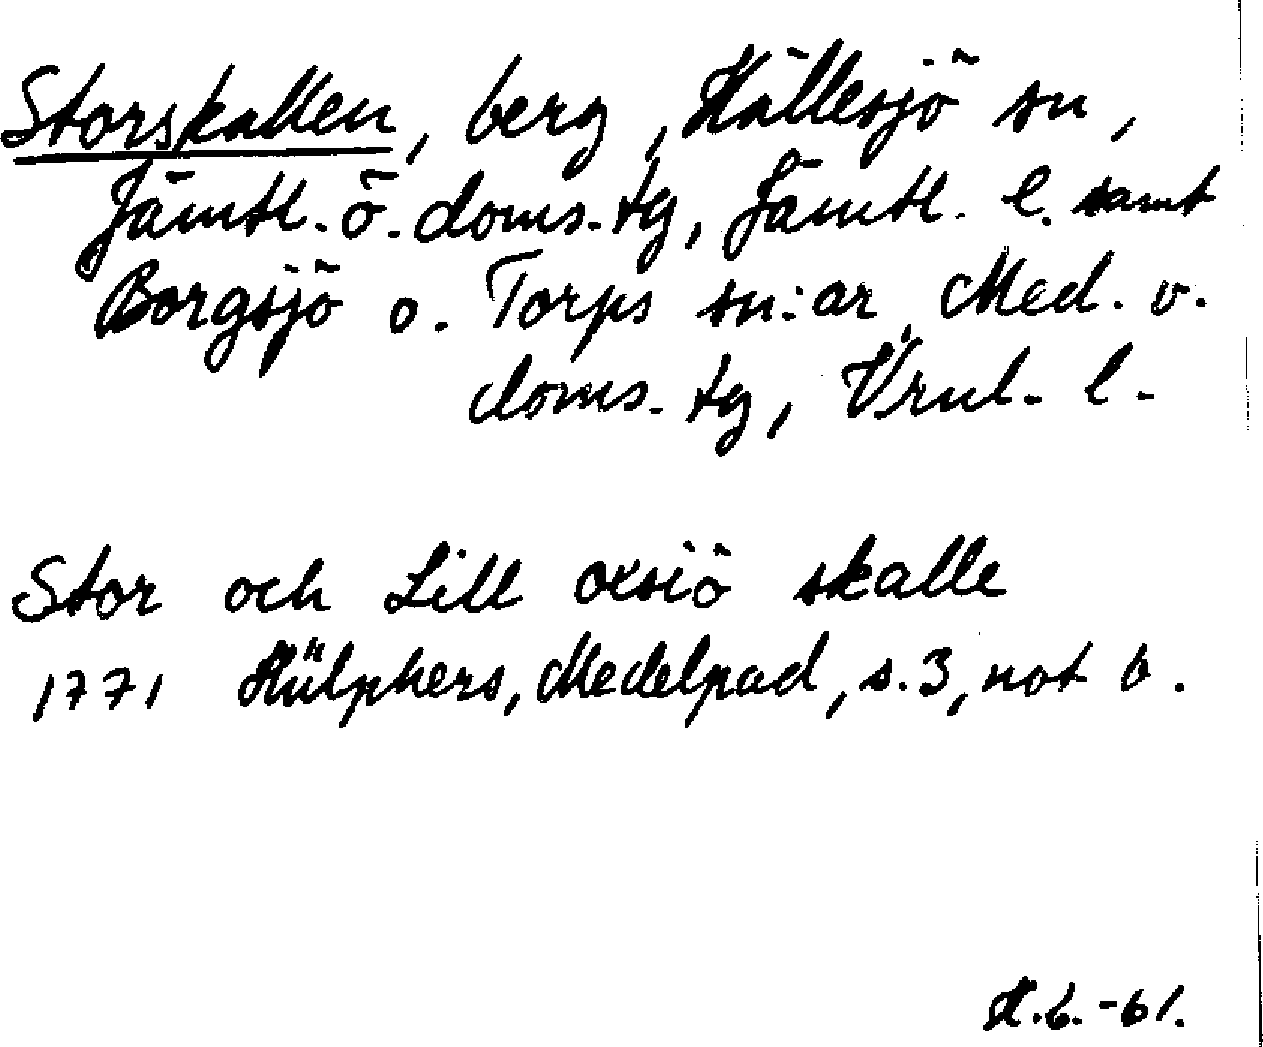 Storskallen, berg, Hällesjö sn,
Jämtl. ö. doms. tg, Jämtl. l. samt
Borgsjö o. Torps sn:ar, Med. v.
doms. tg, Vrnl. l.
Stor och Lill oxsiö skalle
1771 Hülphers, Medelpad, s. 3, not b.
H.G.-61.